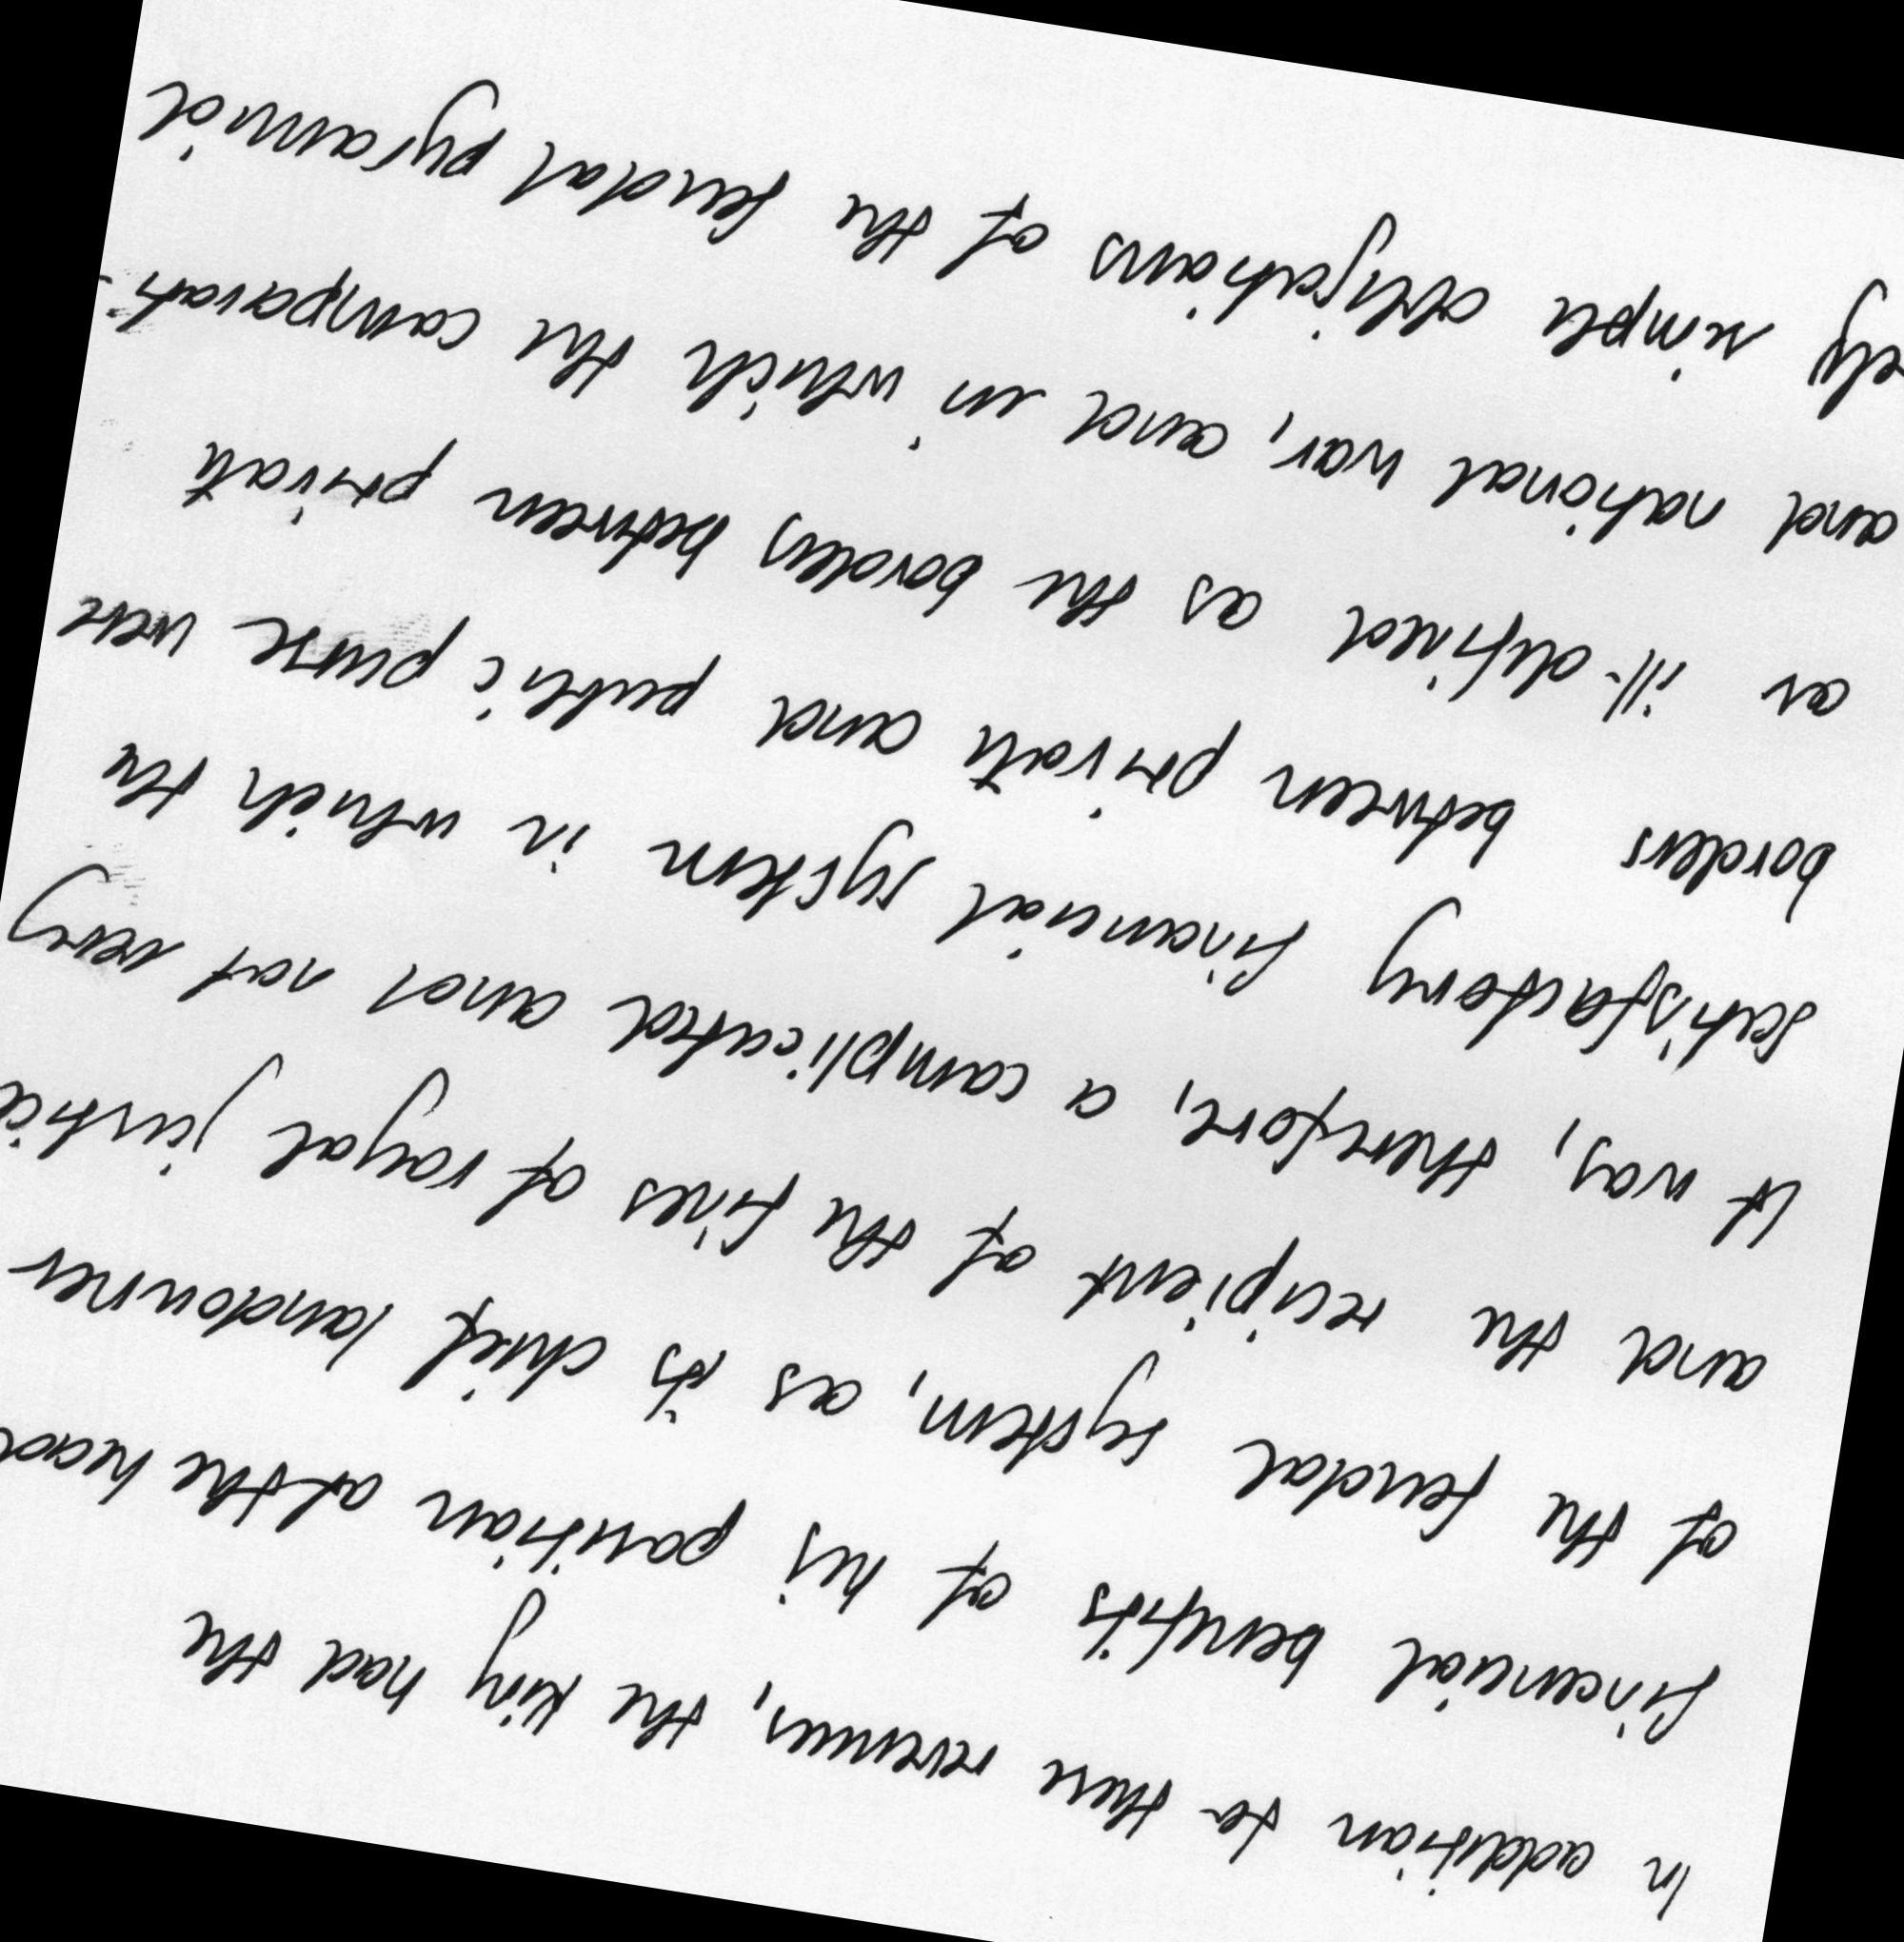 In addition to these revenues, the king had the
financial benefits of his position at the head
of the feudal system, as its chief landowner
and the recipient of the fines of royal justice
It was, therefore, a complicated and not very
satisfactory financial system in which the
borders between private and public purse were
as ill-defined as the borders between private
and national war, and in which the comparati-
ely simple obligations of the feudal pyramid